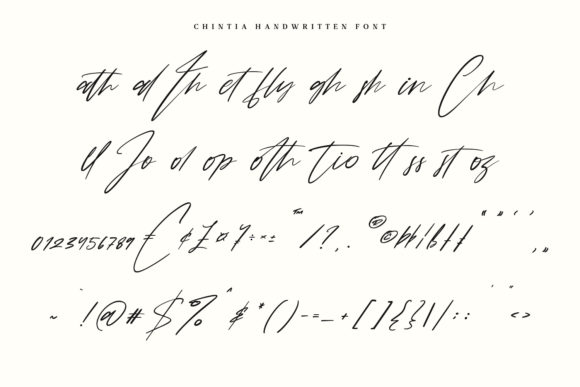 CHINTIA HANDWRITTEN FONT
ath al Th et fly gh sh in Ch
ll Jo ol op oth tio tt ss st oz
0123456789 € ¢ £ ¤ ¥ ÷ × ± ™ / ? , . ® ©
~ ! @ # $ % ^ & * ( ) - = _ + [ ] { } \ | / : ; < >